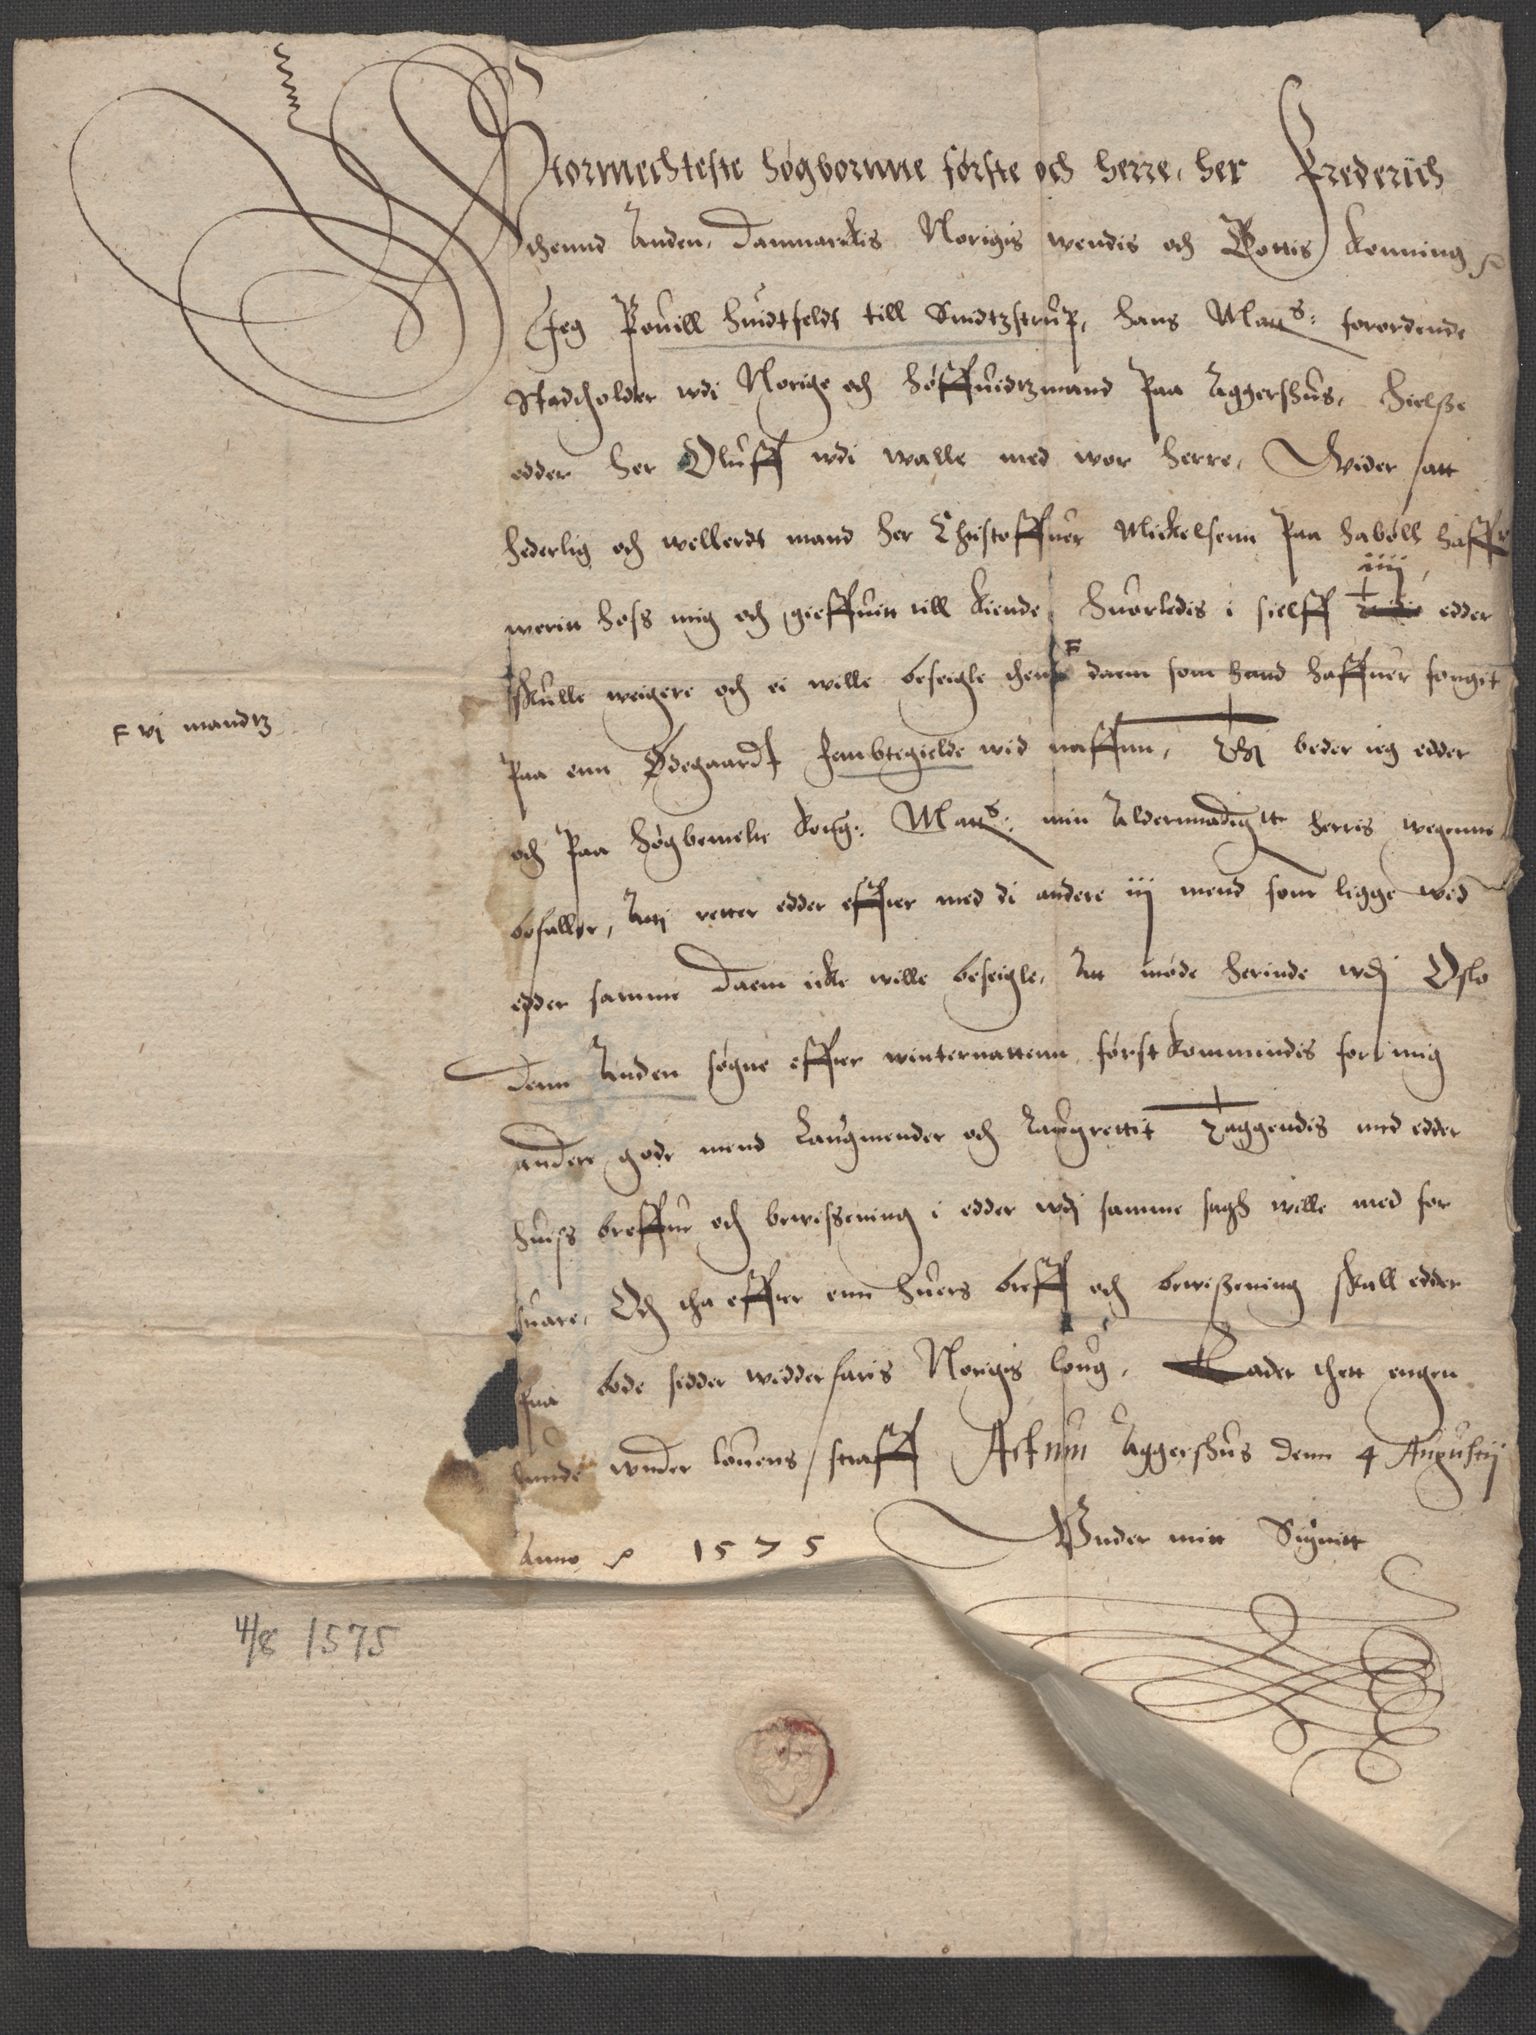 Stormechteste høgbornne første och herre, her Frederich
thennd Anden, Danmarckis Norigis wendis och Gottis konning
Jeg Pouill huidtfeldt till Suidtzstrup, hans Matts: forordende
Stadtholder wdi Norige och høffuidtzmand paa Aggershus, hielsse
edder her Oluff wdi walle med wor herre, Wider att
hederlig och wellerdt mand her Christoffuer Mickelsenn paa habøll haffr
werit hoss mig och gieffuitt till kiende, huorledis i sielff iiij edder
skulle weigere och ei wille beseigle thend F daem som hand haffuer forgit
F vj mandtz
paa enn Ødegaard Jenbtegielde wid naffnn, Thi beder ieg edder
och paa høgbemelte kong: Matts: min Aldernnadigste herris wegenne
befaller, Atti retter edder effter med di andere iij mend som ligge wed
edder samme daem icke wille beseigle, Att møde herinde wdj Oslo
denn Anden søgne effter winternattenn først kommindis for mig
andere gode mend Laugmender och Laugrettit Taggendis med edder
huess breffue och bewissening i edder wdj samme sagh wille med for
suare, Och tha effter enn huers breff och bewissening skall edder
paa bode sidder widderfaris Norigis loug, Lader thett engen
lunde wnder louens straff Actum Aggershus denn 4 Augustij
Anno 1575 Wnder mitt Signitt
4/8 1575